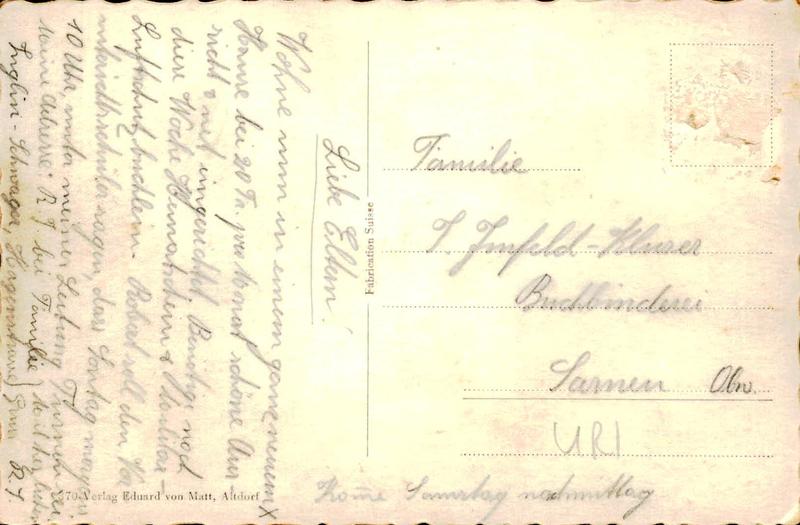 Liebe Eltern!
Wohne nun in einem ganz neuem X
Hause bei 20 Fr. pro Monat schöne Aus
nicht & nett eingerichtet. Benötige noch
diese Woche Heimatschein &
Luftschutzbüchlein. Robert soll den Vor
unterrichtschüler sagen, dass Sonntag morgen
10 Uhr, unter meiner Leitung Turnen sei
Meine Adresse: R J bei Familie
Inglin-Schwager,
R. J
Familie
J. Imfeld-Kluser
Buchbinderei
Sarnen Obw.
URI
Kome Samstag nachmittag
Fabrication Suisse
370 Verlag Eduard von Matt, Altdorf